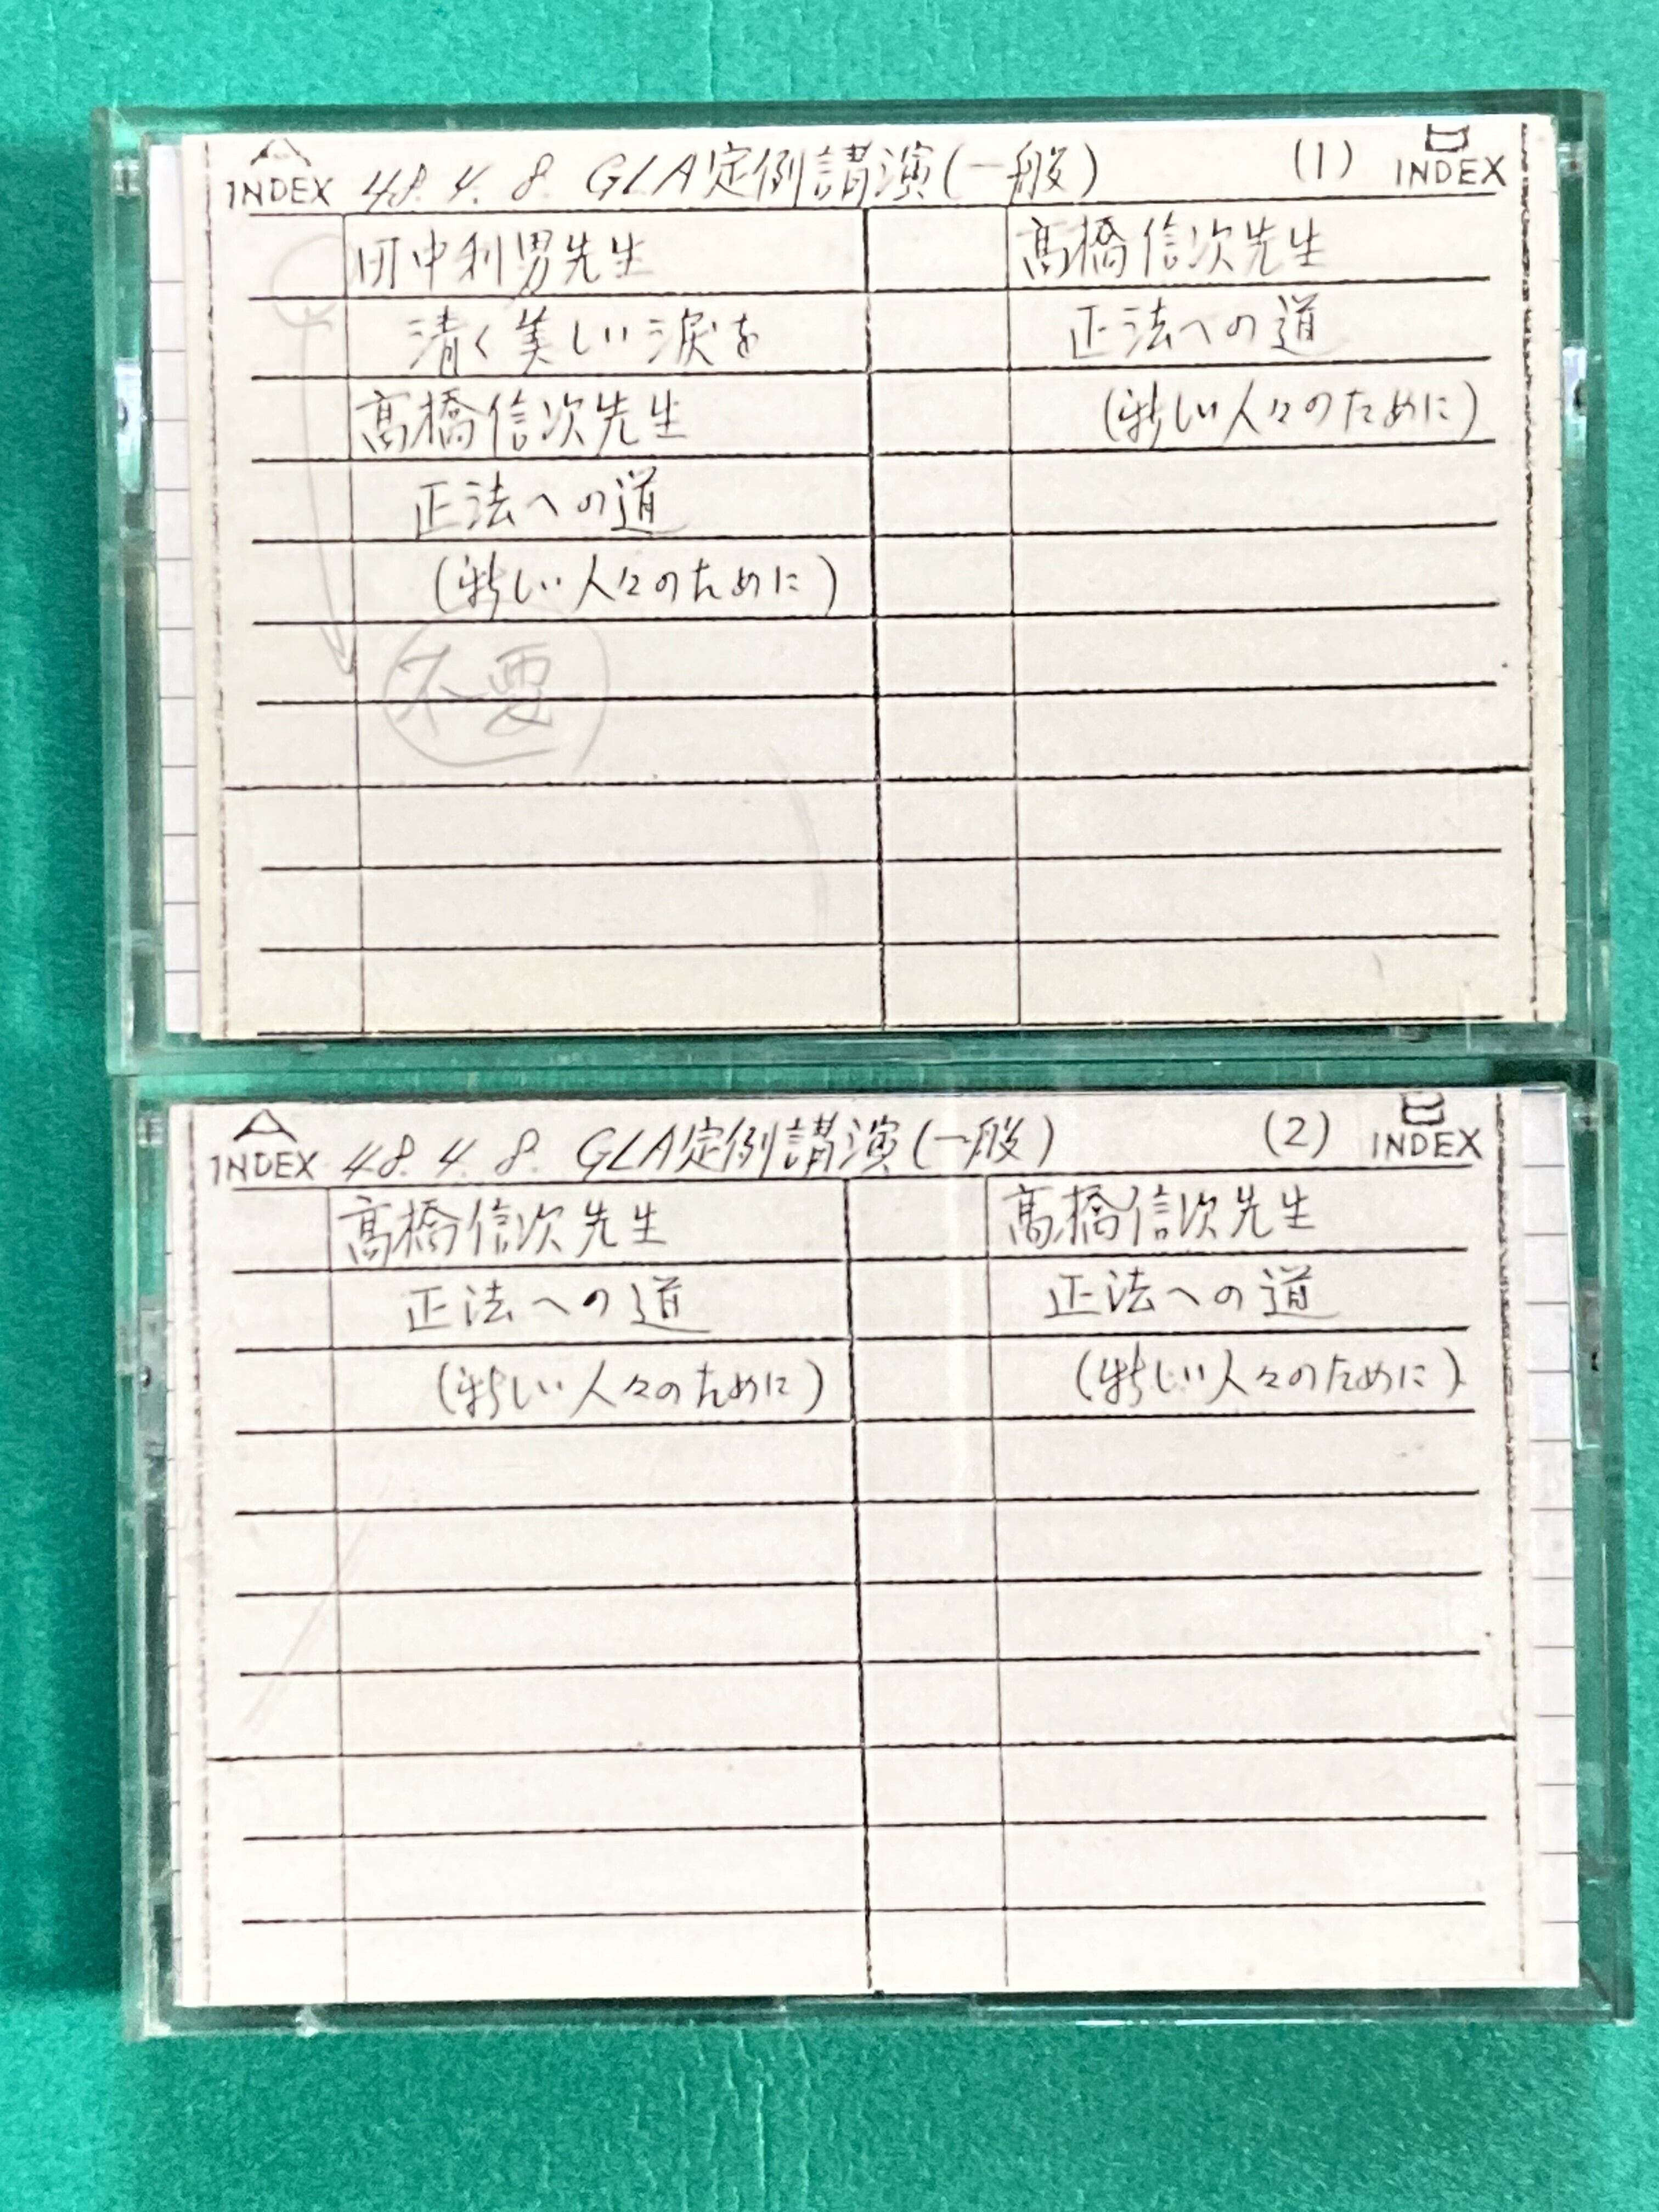 A INDEX 48.4.8. GLA定例講演(一般) (1) B INDEX
田中利男先生
清く美しい涙を
髙橋信次先生
正法への道
(新しい人々のために)
不要
髙橋信次先生
正法への道
(新しい人々のために)
A INDEX 48.4.8. GLA定例講演(一般) (2) B INDEX
髙橋信次先生
正法への道
(新しい人々のために)
髙橋信次先生
正法への道
(新しい人々のために)